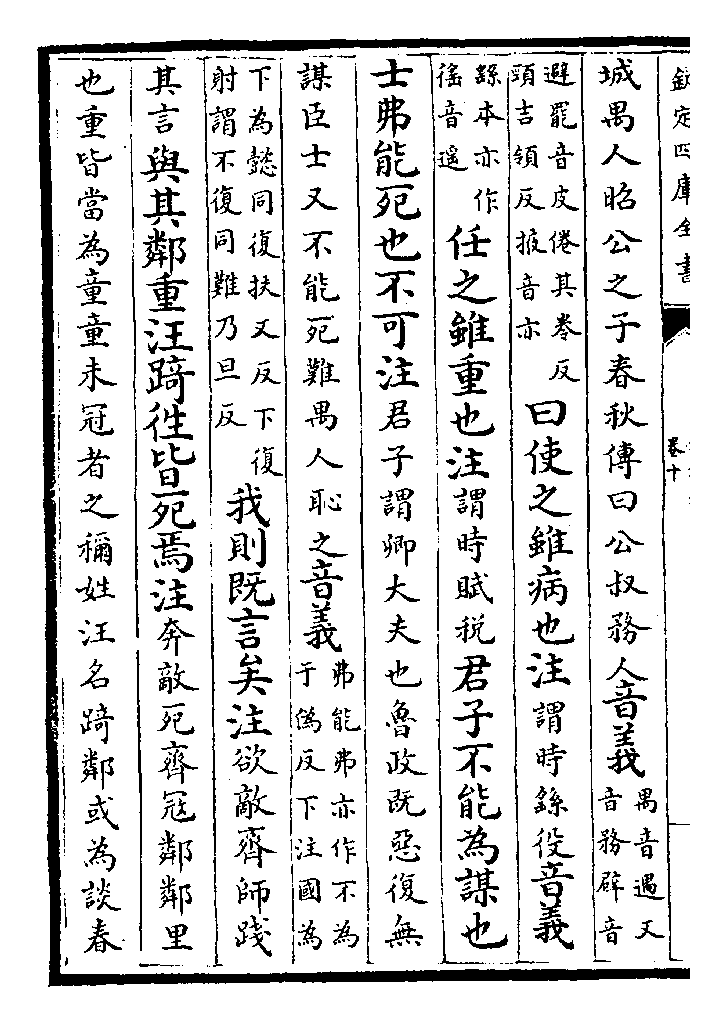 欽定四庫全書
卷十
城禺人昭公之子春秋傳曰公叔務人音義禺音遇又音務辟音
避罷音皮倦其卷反頸吉領反掖音亦曰使之雖病也注謂時繇役音義
繇本亦作徭音遥任之雖重也注謂時賦税君子不能為謀也
士弗能死也不可注君子謂卿大夫也魯政既惡復無
謀臣士又不能死難禺人恥之音義弗能弗亦作不為于偽反下注國為
下為懿同復扶又反下復射謂不復同難乃旦反我則既言矣注欲敵齊師踐
其言與其鄰重汪踦徃皆死焉注奔敵死齊冦鄰鄰里
也重皆當為童童未冠者之稱姓汪名踦鄰或為談春